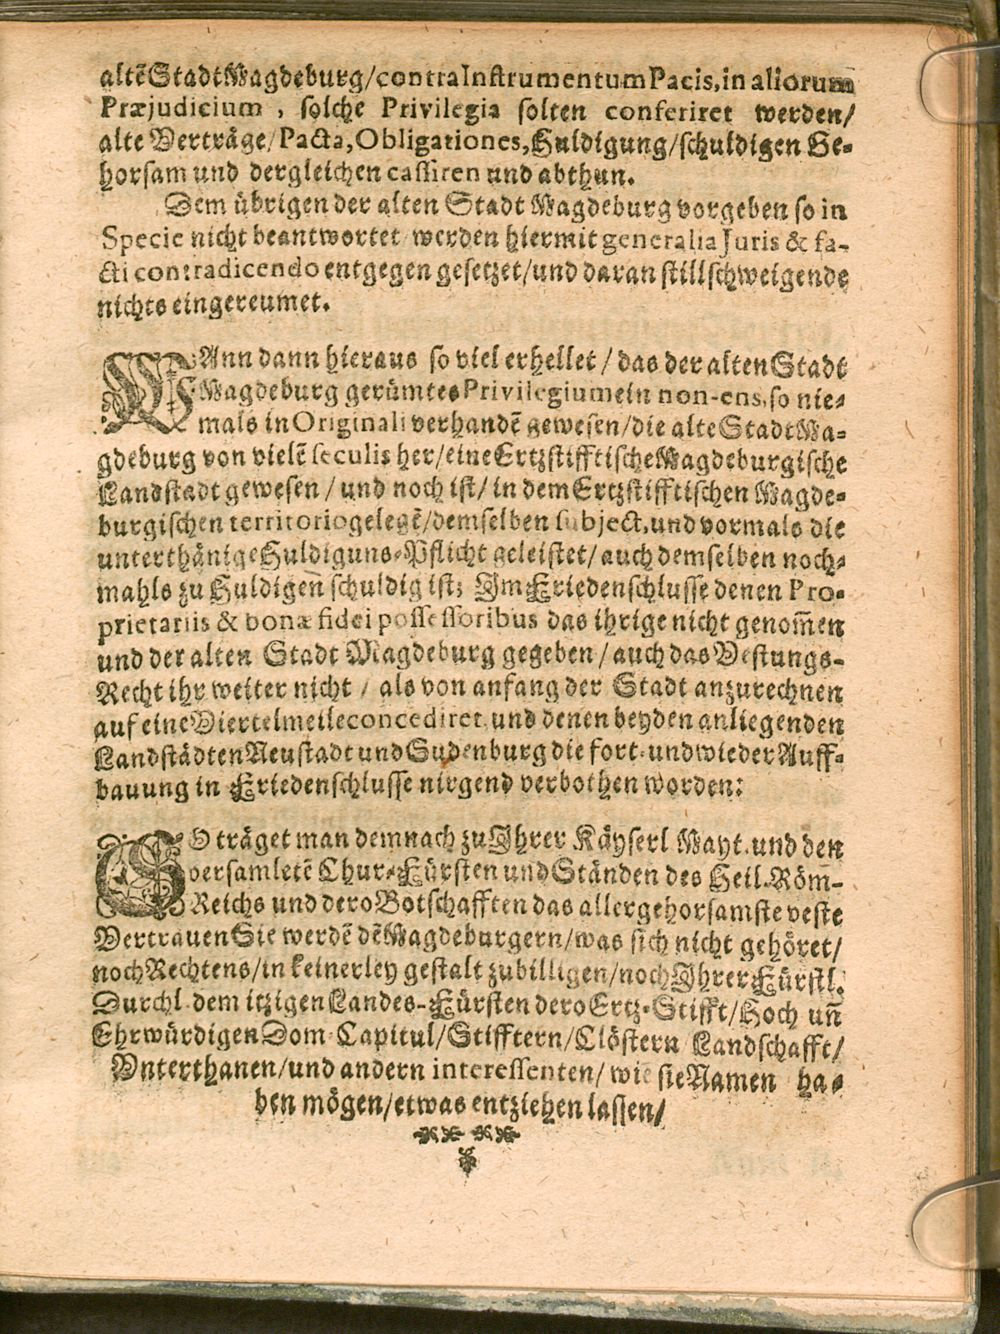 altẽ Stadt Magdeburg/contra Instrumentum Pacis, in aliorum
Præjudicium, solche Privilegia solten conferiret werden/
alte Verträge/Pacta, Obligationes, Huldigung/schuldigen Ge-
horsam und dergleichen cassiren und abthun.
Dem übrigen der alten Stadt Magdeburg vorgeben so in
Specie nicht beantwortet werden hiermit generalia Juris & fa-
cti contradicendo entgegen gesetzet/und daran stillschweigende
nichts eingereumet.
WAnn dann hieraus so viel erhellet/das der alten Stadt
Magdeburg gerümtes Privilegium ein non-ens, so nie-
mals in Originali verhandẽ gewesen/die alte Stadt Ma-
gdeburg von vielẽ seculis her/eine Ertzstifftische Magdeburgische
Landstadt gewesen/und noch ist/in dem Ertzstifftischen Magde-
burgischen territorio gelegẽ/demselben subject, und vormals die
unterthänige Huldigungs-Pflicht geleistet/auch demselben noch-
mahls zu Huldigen schuldig ist; Im Friedenschlusse denen Pro-
prietariis & bonæ fidei possessoribus das ihrige nicht genom̃en
und der alten Stadt Magdeburg gegeben/auch das Vestungs-
Recht ihr weiter nicht/als von anfang der Stadt anzurechnen
auf eine Viertelmeile concediret, und denen beyden anliegenden
Landstädten Neustadt und Sudenburg die fort- und wieder Auff-
bauung in Friedenschlusse nirgend verbothen worden:
SO träget man demnach zu Ihrer Käyserl Mayt. und den
versamletẽ Chur-Fürsten und Ständen des Heil. Röm-
Reichs und dero Botschafften das allergehorsamste veste
Vertrauen Sie werdẽ dẽ Magdeburgern/was sich nicht gehöret/
noch Rechtens/in keinerley gestalt zubilligen/noch Ihrer Fürstl.
Durchl. dem itzigen Landes-Fürsten dero Ertz-Stifft/Hoch un̄
Ehrwürdigen Dom-Capitul/Stifftern/Clöstern Landschafft/
Unterthanen/und andern interessenten/wie sie Namen ha-
ben mögen/etwas entziehen lassen/